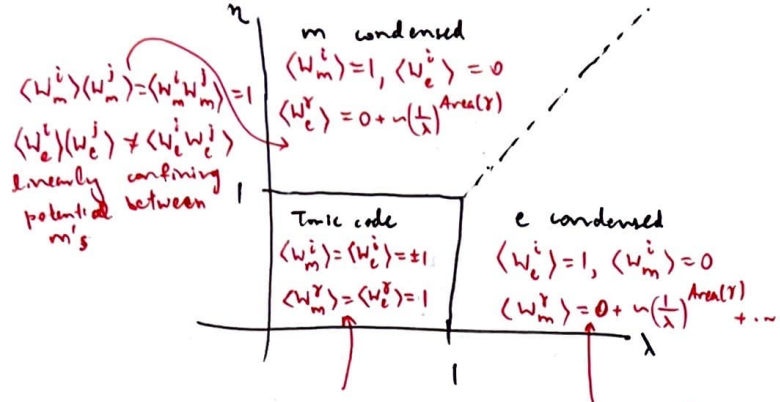 η
m condensed
⟨W_m^i⟩=1, ⟨W_e^i⟩=0
⟨W_e^γ⟩=0+~(1/λ)^Area(γ)
⟨W_m^i⟩⟨W_m^j⟩=⟨W_m^i W_m^j⟩=1
⟨W_e^i⟩⟨W_e^j⟩≠⟨W_e^i W_e^j⟩
linearly confining
potential between
m's
1
Toric code
⟨W_m^i⟩=⟨W_e^i⟩=±1
⟨W_m^γ⟩=⟨W_e^γ⟩=1
e condensed
⟨W_e^i⟩=1, ⟨W_m^i⟩=0
⟨W_m^γ⟩=0+~(1/λ)^Area(γ)
+...
λ
1